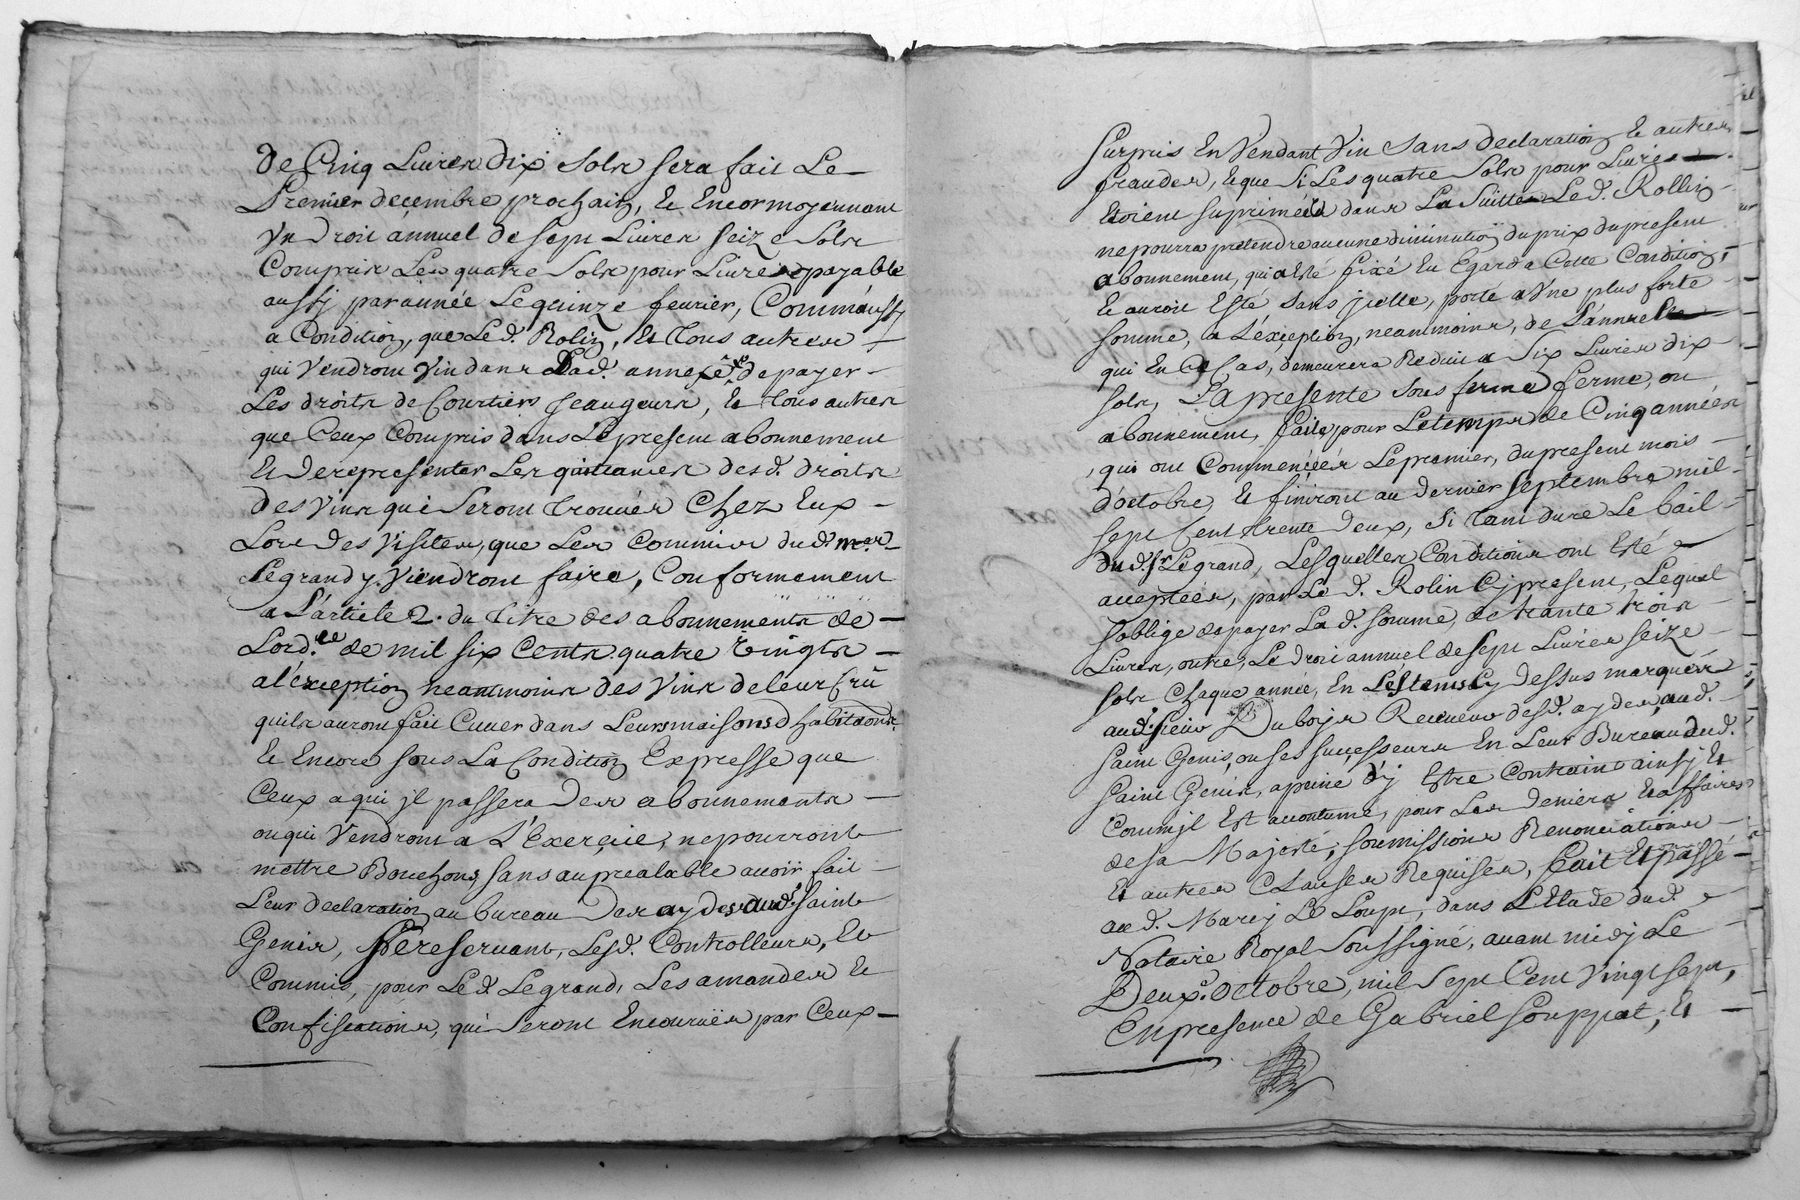 de Cinq Livres dix sols sera fait Le
Premier decembre prochain, Et Encor moyennant
Un droit annuel de sept Livres seize sols
Compris Les quatre sols pour Livre payable
aussy par année Le quinze fevrier, Comm'aussy
a Condition, que Led. Rolin, Et tous autres
qui Vendront Vin dans Lad. annexe de payer
Les droits de Courtiers Jeaugeurs, Et tous autres
que Ceux Compris dans Le present abonnement
Et De representer Les quittances desd. droits
des Vins qui Seront trouvés Chez Eux
Lors des Visites, que Les Commis dud.
Legrand y Viendront faire, Conformement
a L'article 2. du titre des abonnements de
Lord.ce de mil six Cents quatre Vingts
a l'exception neantmoins des Vins de leur Crû
quils auront fait Cuver dans Leurs maisons d'habitaons
Et Encore sous La Condition Expresse que
Ceux a qui jl passera Des abonnements
ou qui Vendront a L'Exercice, ne pourront
mettre Bouchons, sans au prealable avoir fait
Leur declaration au bureau Des aydes dud. Saint
Genis, Se reservant, Lesd. Controlleurs, Et
Commis, pour Led. Legrand, Les amandes Et
Confiscations, qui Seront Encourües par Ceux
Surpris En Vendant Vin Sans declaration Et autres
fraudes, Et que Si Les quatre Sols pour Livres
Etoient suprimées dans La Suitte Led. Rollin
ne pourra pretendre aucune diminution du prix du present
abonnement, qui a Esté fixé Eu Egard a Cette Condition,
Et auroit Esté Sans jcelle, porté a Une plus forte
somme, a L'exception, neantmoins, de L'annuel
qui En Ce Cas, demeurera Reduit a Six Livres dix
sols, La presente sous ferme, ou
abonnement, faite, pour Le temps de Cinq années
, qui ont Commencées Le premier, du present mois
d'octobre, Et finiront au Dernier septembre mil
sept Cent trente deux, Si tant dure Le bail
dud. Sr Legrand, Lesquelles Conditions ont Esté
acceptées, par Led. Rolin Cy present, Lequel
s'oblige de payer Lad. somme, de trante trois
Livres, outre, Le droit annuel de sept Livres seize
sols Chaque année, En Les tems Cy dessus marqués
aud. sieur Duboys Receveur desd. aydes, aud.
Saint Genis, ou ses successeurs En Leur Bureau dud.
Saint Genis, a peine d'y Estre Contraint ainsy Et
Comm'jl Est acoutumé, pour Les deniers Et affaires
de sa Majesté, soumissions Renonciations
Et autres Clauses Requises, Fait Et passé
aud. Marcy Le Loup, dans L'Etude dud.
Notaire Royal Soussigné, avant midy Le
Deuxe. octobre, mil sept Cent Vingt sept,
En presence de Gabriel Souppat, Et